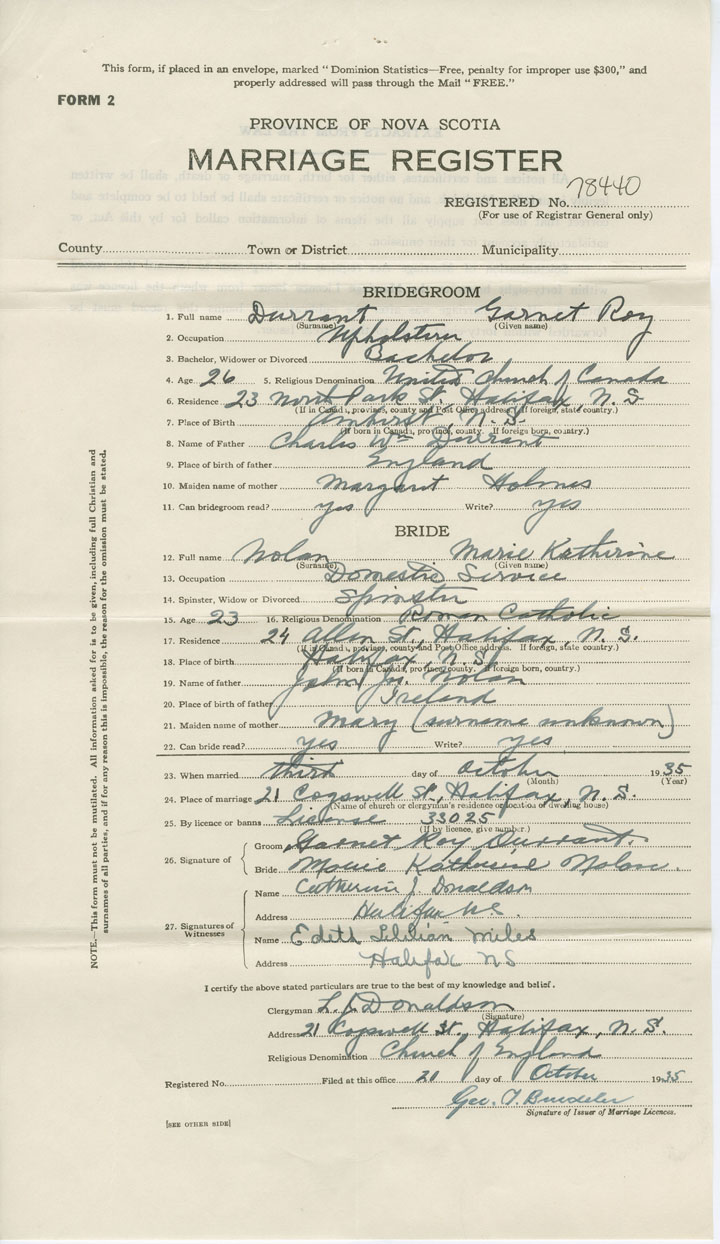 This form, if placed in an envelope, marked "Dominion Statistics—Free, penalty for improper use $300," and
properly addressed will pass through the Mail "FREE."
FORM 2
PROVINCE OF NOVA SCOTIA
MARRIAGE REGISTER
REGISTERED No. 78440
(For use of Registrar General only)
County Town or District Municipality
BRIDEGROOM
1. Full name Durrant Garnet Roy
(Surname) (Given name)
2. Occupation Upholsterer
3. Bachelor, Widower or Divorced Bachelor
4. Age 26 5. Religious Denomination United Church of Canada
6. Residence 23 North Park St., Halifax, N. S.
(If in Canada, province, county and Post Office address. If foreign, state country.)
7. Place of Birth Amherst, N. S.
(If born in Canada, province, county. If foreign born, country.)
8. Name of Father Charles Wm Durrant
9. Place of birth of father England
10. Maiden name of mother Margaret Holmes
11. Can bridegroom read? yes Write? yes
BRIDE
12. Full name Nolan Marie Katherine
(Surname) (Given name)
13. Occupation Domestic Service
14. Spinster, Widow or Divorced Spinster
15. Age 23 16. Religious Denomination Roman Catholic
17. Residence 24 Allen St., Halifax, N. S.
(If in Canada, province, county and Post Office address. If foreign, state country.)
18. Place of birth Halifax, N. S.
(If born in Canada, province, county. If foreign born, country.)
19. Name of father John Jos. Nolan
20. Place of birth of father Ireland
21. Maiden name of mother Mary (surname unknown)
22. Can bride read? yes Write? yes
23. When married third day of October 1935
(Month) (Year)
24. Place of marriage 21 Cogswell St., Halifax, N. S.
(Name of church or clergyman's residence or location of dwelling house)
25. By licence or banns License 33025
(If by licence, give number.)
26. Signature of
Groom Garnet Roy Durrant.
Bride Marie Katherine Nolan.
27. Signatures of Witnesses
Name Catherine J. Donaldson
Address Halifax NS.
Name Edith Lillian Miles
Address Halifax NS
I certify the above stated particulars are to the best of my knowledge and belief.
Clergyman L. J. Donaldson
(Signature)
Address 21 Cogswell St., Halifax, N. S.
Religious Denomination Church of England
Registered No. Filed at this office 21 day of October 1935
Geo.
Signature of Issuer of Marriage Licences.
[SEE OTHER SIDE]
NOTE.—This form must not be mutilated. All information asked for is to be given, including full Christian and
surnames of all parties, and if for any reason this is impossible, the reason for the omission must be stated.